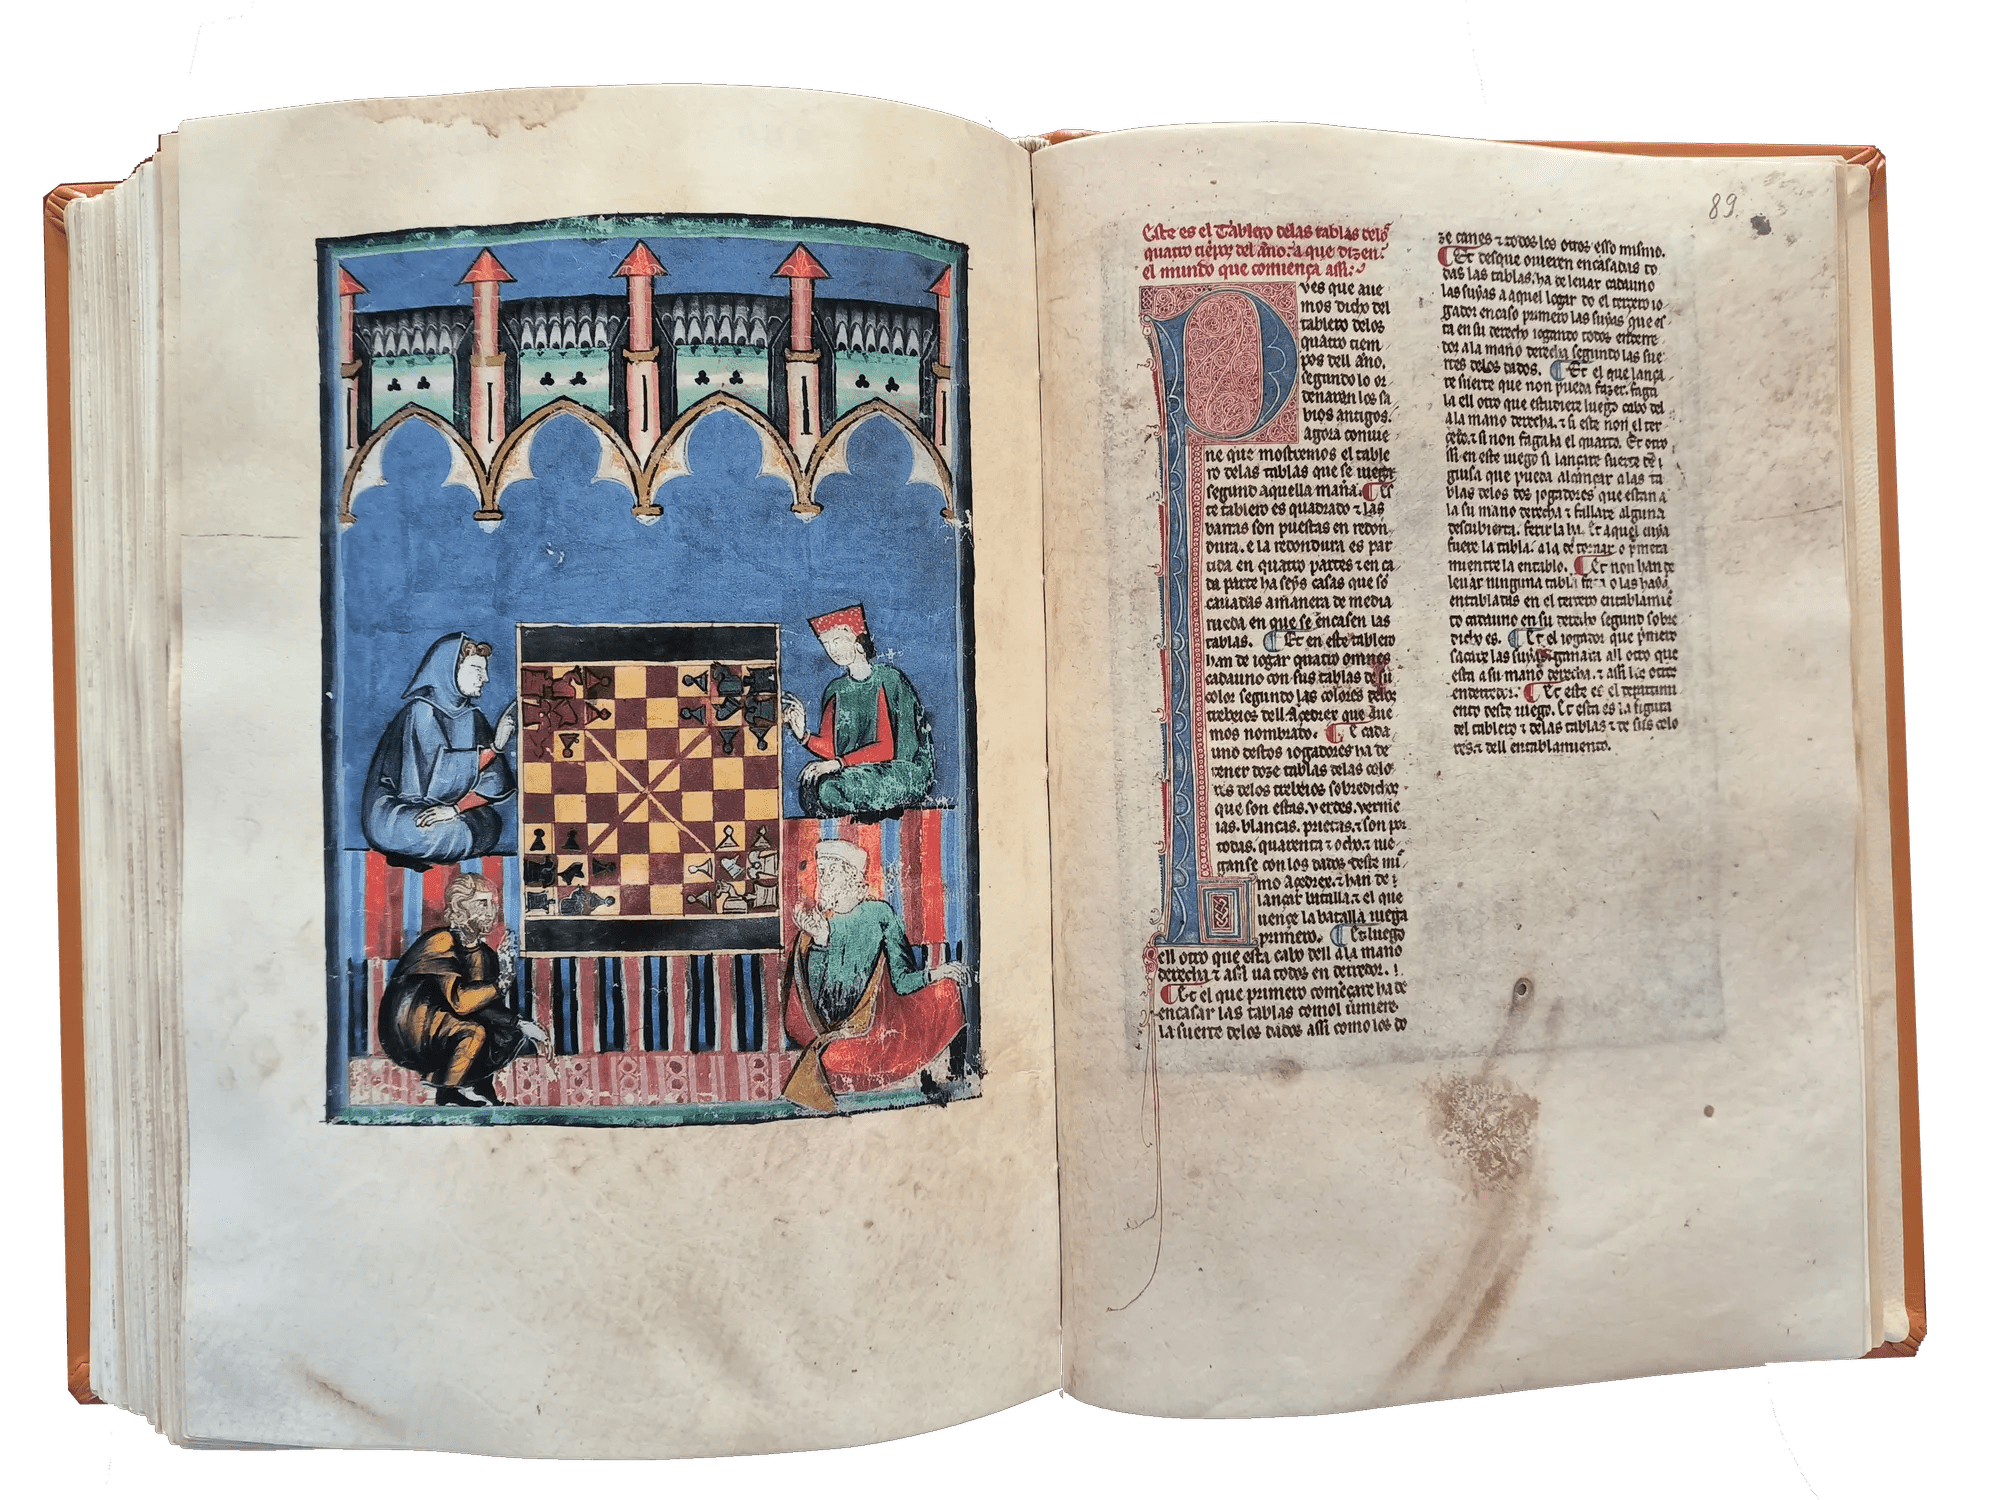 89
Este es el Tablero delas tablas delos
quatro tienpos del anno. a que dizen.
el mundo que comiença assi.
PVES que aue
mos dicho del
tablero delos
quatro tiem
pos dell anno.
segundo lo or
denaron los sa
bios antigos.
agora conuie
ne que mostremos el table
ro delas tablas que se iuega
segund aquella manera. Es
te tablero es quadrado & las
barras son puestas en redon
dura. e la redondura es par
tida en quatro partes & en ca
da parte ha seys casas que son
cauadas a manera de media
rueda en que se encasen las
tablas. Et en este tablero
han de iogar quatro omnes
cadauno con sus tablas de su
color segund las colores delos
trebeios dell Açedrex que aue
mos nombrado. E cada
uno destos iogadores ha de
tener doze tablas delas colo
res delos trebeios sobredichos
que son estas. verdes. vermei
ias. blancas. prietas. & son por
todas. quarenta & ocho. & iue
ganse con los dados deste mis
mo Açedrex. & han de
lançar batalla. & el que
uençe la batalla iuega
primero. Et luego
ell otro que esta cabo dell a la mano
derecha & assi ua todos en derredor.
Et el que primero começare ha de
encasar las tablas como l uiniere
la suerte delos dados assi como los do
ze canes & todos los otros esso mismo.
Et desque ouieren encasadas to
das las tablas. ha de leuar cadauno
las suyas a aquel logar do el terçero io
gador encasó primero las suyas que es
ta en su derecho iogando todos enderre
dor a la mano derecha segund las sue
rtes delos dados. Et el que lança
re suerte que non pueda fazer. faga
la ell otro que estudiere luego cabo del
a la mano derecha. & si este non el ter
cero. & si non fagala el quarto. Et otro
ssi en este iuego si lançare suerte de
guisa que pueda alcançar a las ta
blas delos dos iogadores que estan a
la su mano derecha & fallare alguna
descubierta. ferir la ha. Et aquel cuya
fuere la tabla. a la de tornar o prime
mientre la entablo. Et non han de
leuar ninguna tabla fata o las hayan
entabladas en el terçero entablamien
to cadauno en su derecho segund sobre
dicho es. Et el iogador que primero
sacare las suyas ganara all otro que
esta a su mano derecha. & assi los otros
enderredor. Et este es el departimi
ento deste iuego. Et esta es la figura
del tablero & delas tablas & de sus colo
res & dell entablamiento.